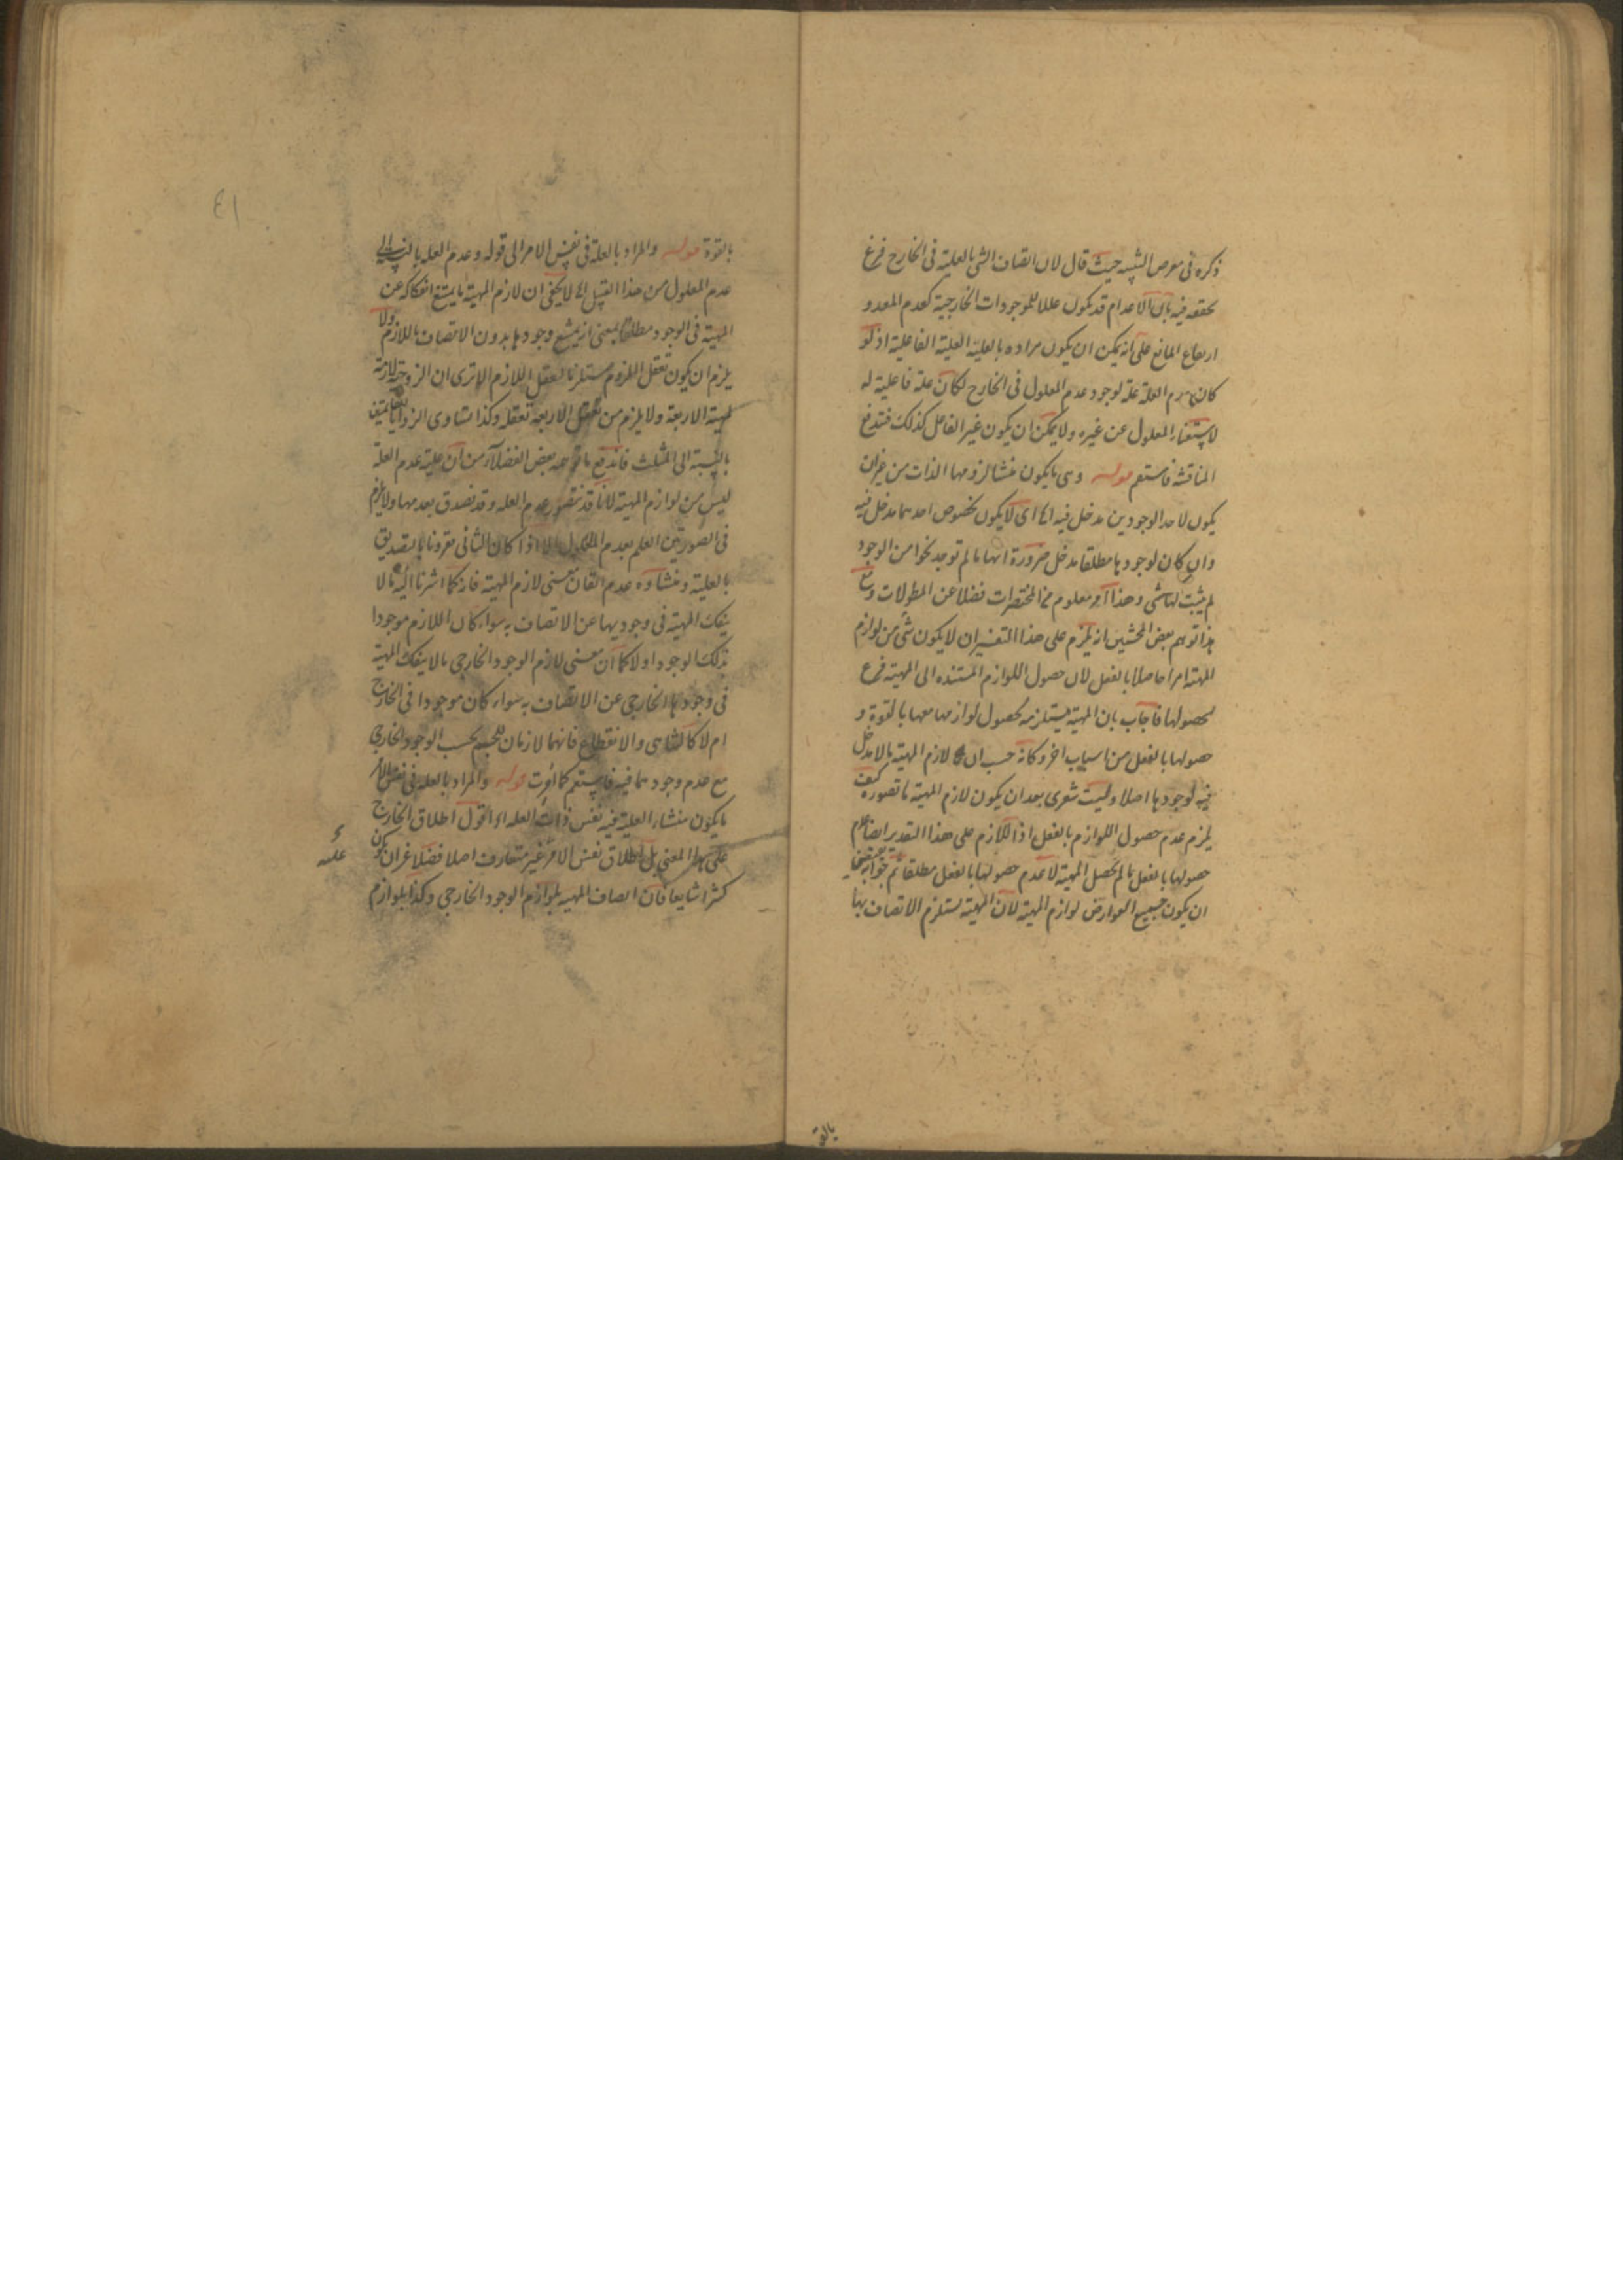 ذكره في معرض الشبه حيث قال لان اتصاف الشي بالعلية في الخارج فرع
تحققه فيه بان الاعدام قد يكون عللا للموجودات الخارجية كعدم المعد و
ارتفاع المانع على انه يمكن ان يكون مراده بالعلية العلية الفاعلية اذ لو
كان عدم العلة علة لوجود عدم المعلول في الخارج لكان علة فاعلية له
لاستغناء المعلول عن غيره ولا يمكن ان يكون غير الفاعل كذلك فتندفع
المناقشة فاستقم قوله وهي ما يكون منشا لزومها الذات من غير ان
يكون لاحد الوجودين مدخل فيه الخ اى لا يكون لخصوص احدهما مدخل فيه
وان كان لوجودها مطلقا مدخل ضرورة انها ما لم توجد نحوا من الوجود
لم يثبت لها شي وهذا امر معلوم من المختصرات فضلا عن المطولات ومع
هذا توهم بعض المحشين انه يلزم على هذا التفسير ان لا يكون شي من لوازم
المهية امرا حاصلا بالفعل لان حصول اللوازم المستنده الى المهية فرع
لحصولها فاجاب بان المهية يستلزم لحصول لوازمها معها بالقوة و
حصولها بالفعل من اسباب اخر وكانه حسب ان لازم المهية ما لا مدخل
فيه لوجودها اصلا وليت شعرى بعد ان يكون لازم المهية ما تصوره كيف
يلزم عدم حصول اللوازم بالفعل اذ اللازم على هذا التقدير ايضا عدم
حصولها بالفعل ما لم تحصل المهية لا عدم حصولها بالفعل مطلقا ثم جوابه يقتضى
ان يكون جميع العوارض لوازم المهية لان المهية تستلزم الاتصاف بها
بالقوة
بالقوة قوله والمراد بالعلة في نفس الامر الى قوله وعدم العله بالنسبة الى
عدم المعلول من هذا القبيل الخ لا يخفى ان لازم المهية ما يمتنع انفكاكه عن
المهية في الوجود مطلقا بمعنى انه يمتنع وجودها بدون الاتصاف باللازم ولا
يلزم ان يكون تعقل الملزوم مستلزما لتعقل اللازم الا ترى ان الزوجية لازمة
لمهية الاربعة ولا يلزم من تعقل الاربعة تعقله وكذا تساوى الزوايا لقائمتين
بالنسبة الى المثلث فاندفع ما توهمه بعض الفضلاء من ان علية عدم العلة
ليس من لوازم المهية لانا قد نتصور عدم العله وقد نصدق بعدمها ولا يلزم
في الصورتين العلم بعدم المعلول الا اذا كان الثاني مقرونا بالتصديق
بالعلية ومنشاوه عدم اتقان معنى لازم المهية فانه كما اشرنا اليه ما لا
ينفك المهية في وجوديها عن الاتصاف به سواء كان اللازم موجودا
بذلك الوجود اولا كما ان معنى لازم الوجود الخارجي ما لا ينفك المهية
في وجودها الخارجي عن الاتصاف به سواء كان موجودا في الخارج
ام لا كالتناهى والانقطاع فانهما لازمان للجسم بحسب الوجود الخارجي
مع عدم وجودهما فيه فاستقم كما امرت قوله والمراد بالعله في نفس الامر
ما يكون منشاء العلية فيه نفس ذات العله الخ اقول اطلاق الخارج
على هذا المعنى بل اطلاق نفس الامر غير متعارف اصلا فضلا عن ان يكون
كثرا شايعا فان اتصاف المهيه بلوازم الوجود الخارجي وكذا بلوازم